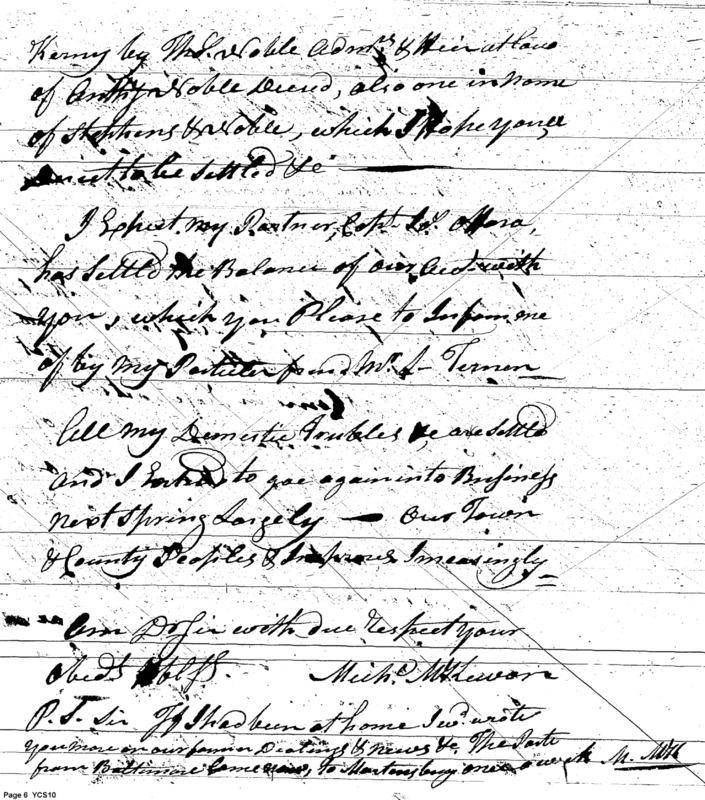 Kerny by Thos. Noble Admrs. & Heir at law
of Anthy Noble Decesed, also one in Name
of Stephens & Noble, which I hope you
to be Settled &c
I Expect my Partner, Capt.
has Settled the Balance of our Acct. with
you, which you Please to Inform me
of by my Particular friend Mr.
All my Domestic Troubles &c are Settled
and I Intend to goe again into Business
next Spring Largely — Our Town
& County Peoples & Improves Increasingly
am Dr Sir with due respect your
Obedt. Michl. McKewan
P.S. Sir If I had been at home I wd. wrote
you more on our former Dealings & news &c The Post
from Baltimore Comes now, to Martinsburg once a week M. McK
Page 6 YCS10